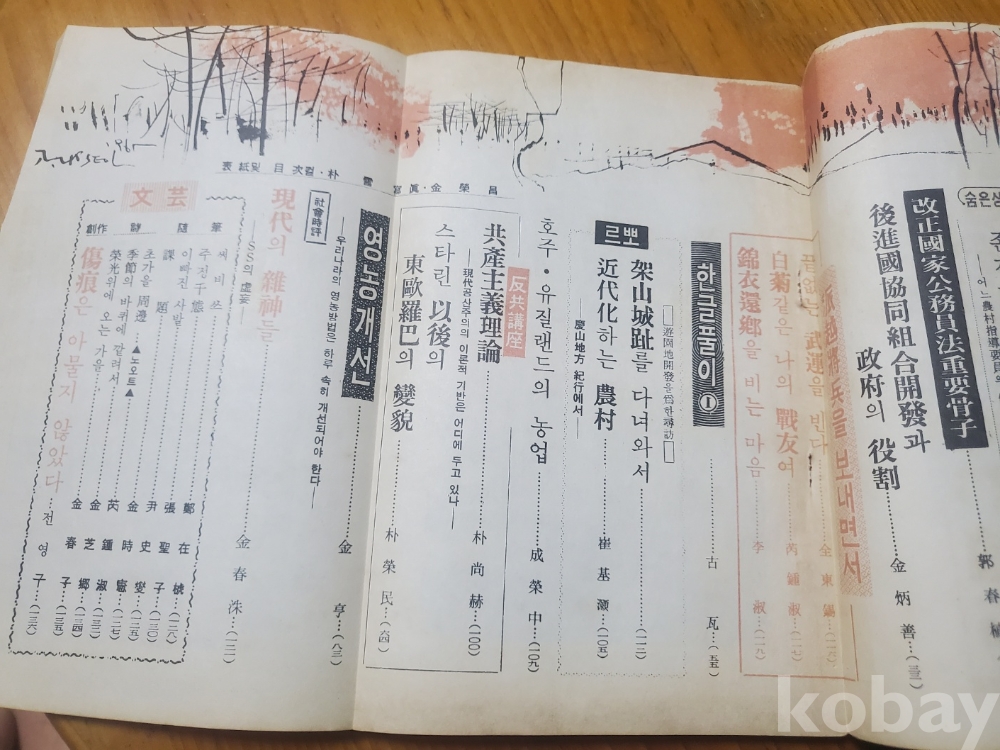 숨은
改正國家公務員法重要骨子
後進國協同組合開發과
政府의 役割
金炳善
派越將兵을 보내면서
끝없는 武運을 빈다
全東錫…(一一六)
白菊같은 나의 戰友여
芮鍾淑…(一一七)
錦衣還鄕을 비는 마음
李淑…(一一九)
한글풀이①
古瓦…(五五)
르뽀
遊園地開發을 爲한 尋訪
架山城趾를 다녀와서
(一一二)
近代化하는 農村
慶山地方 紀行에서
崔基灝…(一〇五)
호주·유질랜드의 농업
成榮中…(一〇九)
反共講座
共產主義理論
—現代공산주의의 이론적 기반은 어디에 두고 있나—
朴尚赫…(一〇〇)
스타린 以後의
東歐羅巴의 變貌
朴榮民…(六四)
영농개선
—우리나라의 영농방법은 하루 속히 개선되어야 한다—
金亨…(八三)
社會時評
現代의 雜神들
—SS의 虛妄
金春洙…(一二一)
文芸
隨筆
씨비쏘
鄭在
(一二六)
주진千態
張聖子…(一三〇)
課題
이빠진 사발
尹史燮
詩
초가을 周邊
▲노오트▲
金時憲…(一二七)
季節의 바퀴에 깔려서
芮鍾淑
榮光위에 오는 가을
金芝鄕
創作
金春子…(一三五)
傷痕은 아물지 않았다
전영子…(一三六)
表紙및 目次컽·朴雲
寫眞·金榮昌
1965
kobay